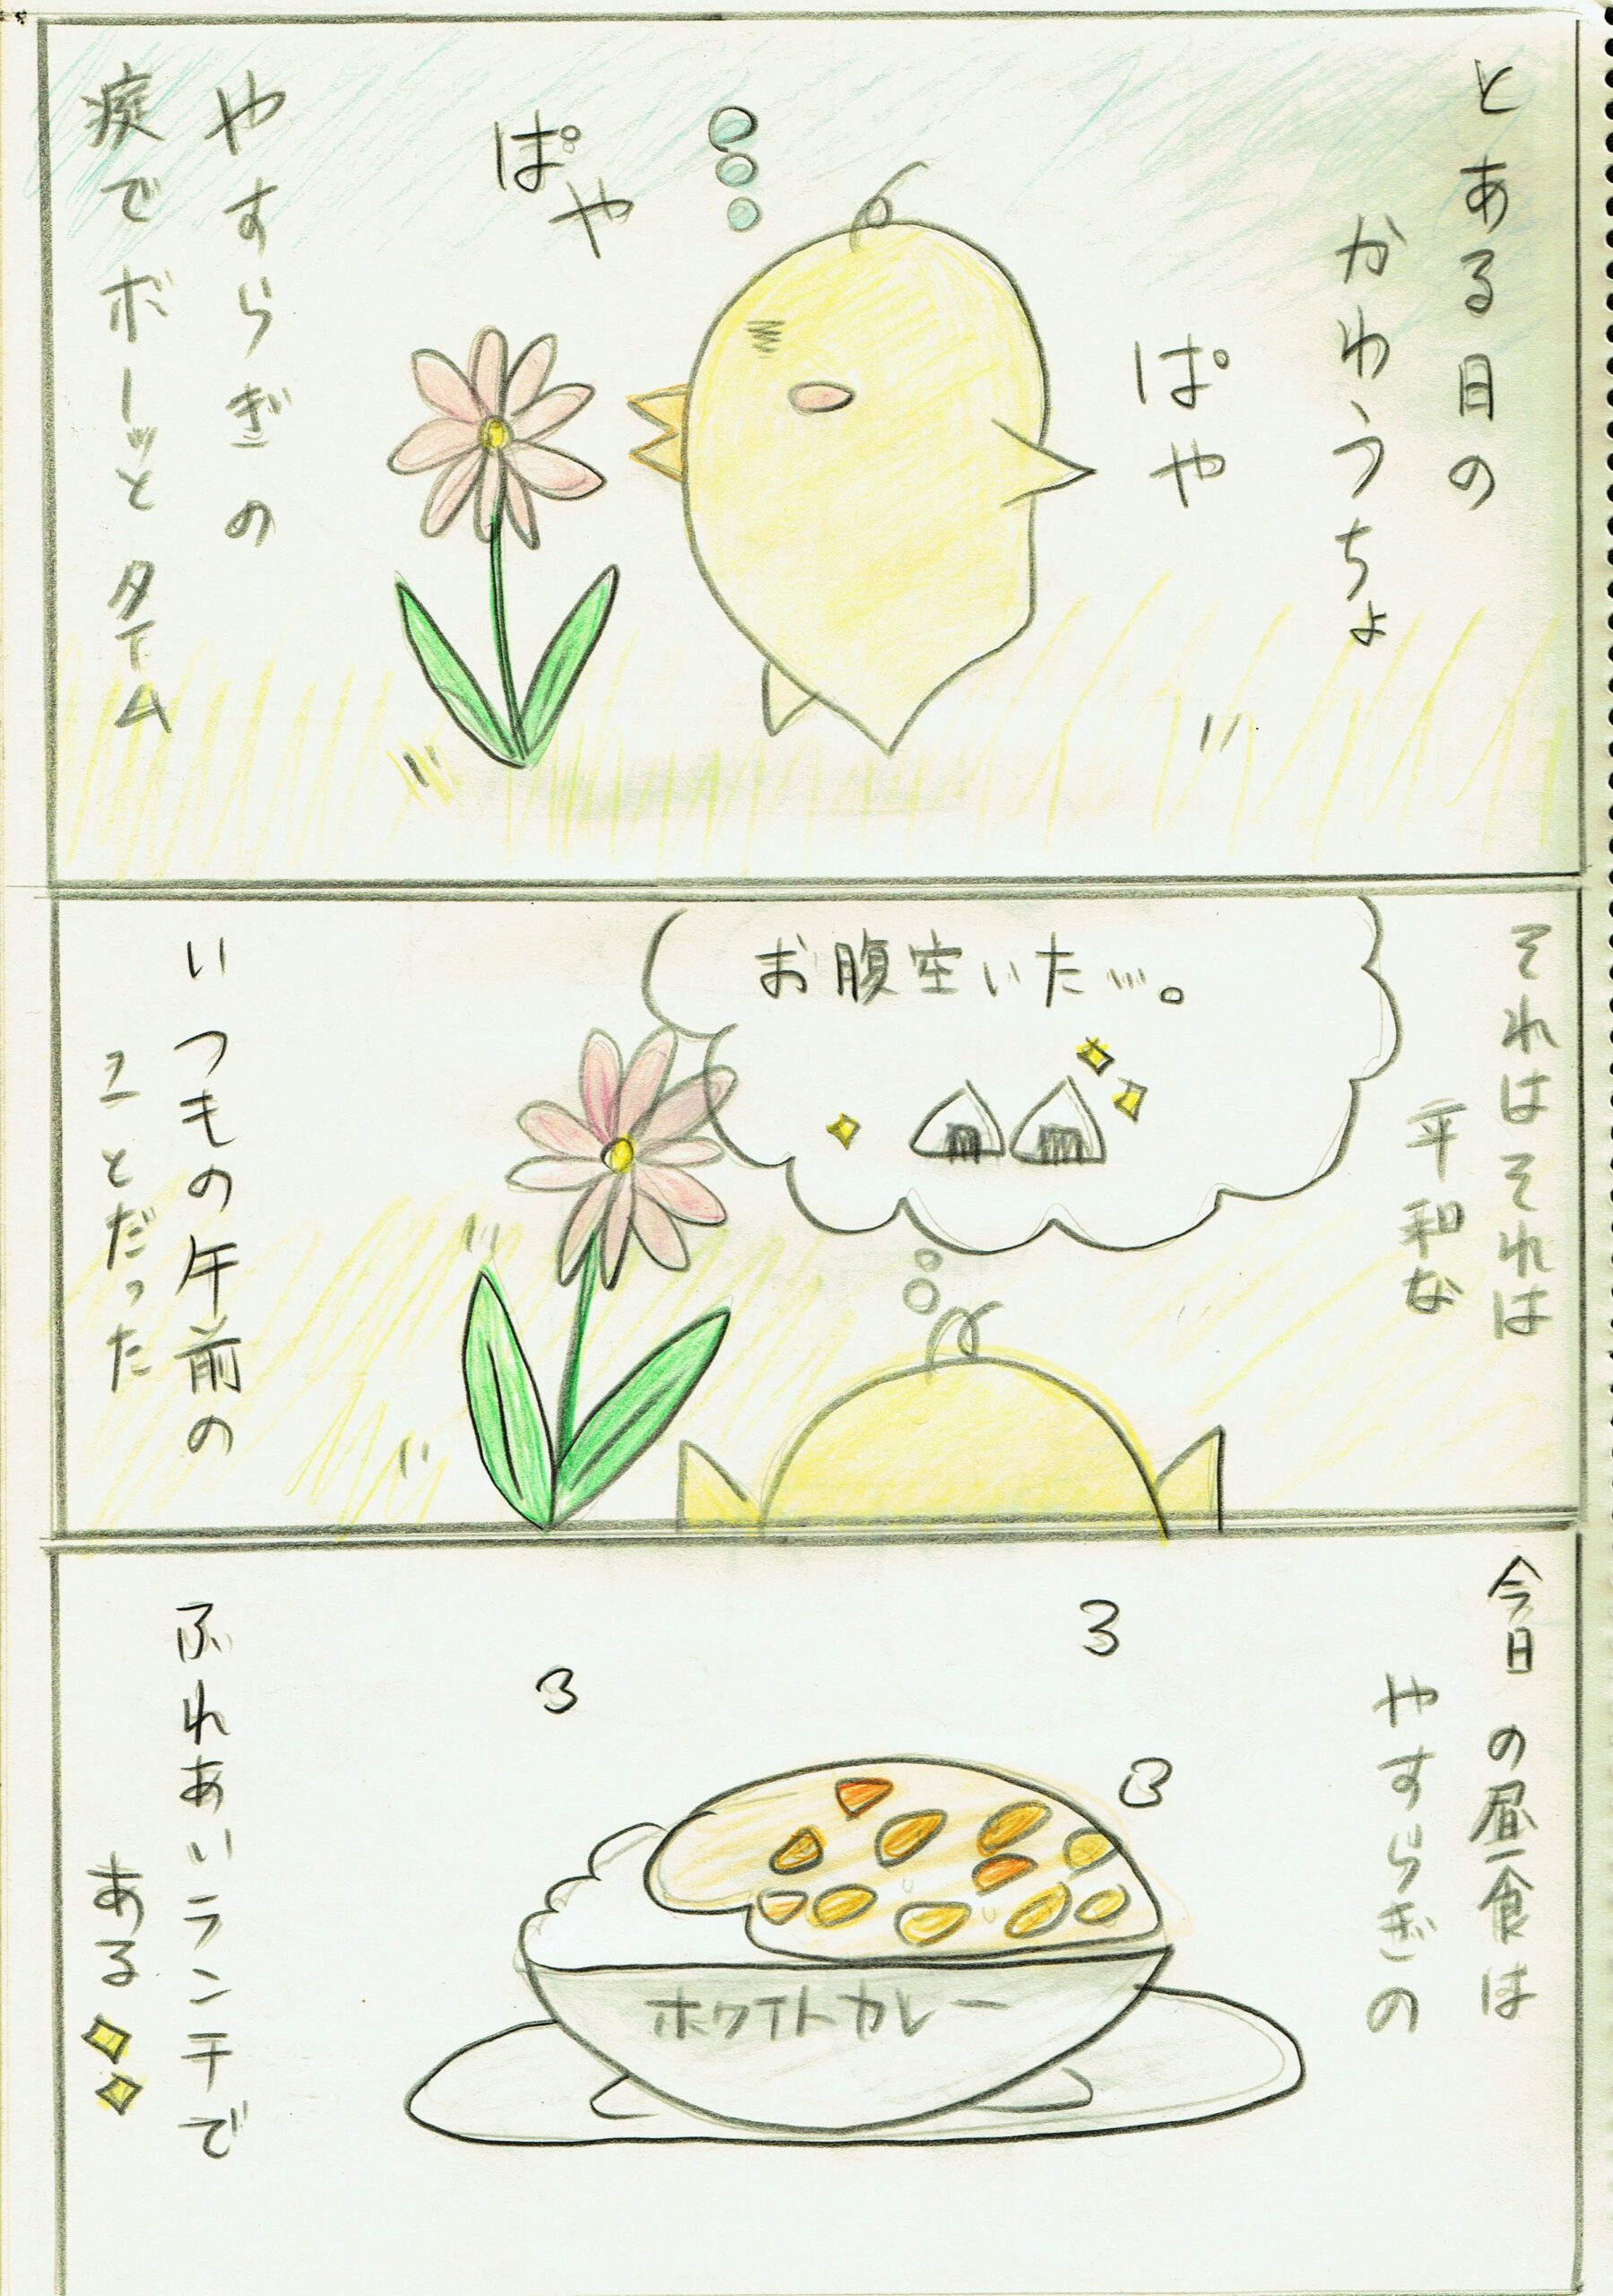 とある日の
かわうちょ
ぱや
ぱや
やすらぎの
庭でボーッとタイム
それはそれは
平和な
お腹空いた…。
いつもの午前の
ことだった
今日の昼食は
やすらぎの
ホワイトカレー
ふれあいランチで
ある